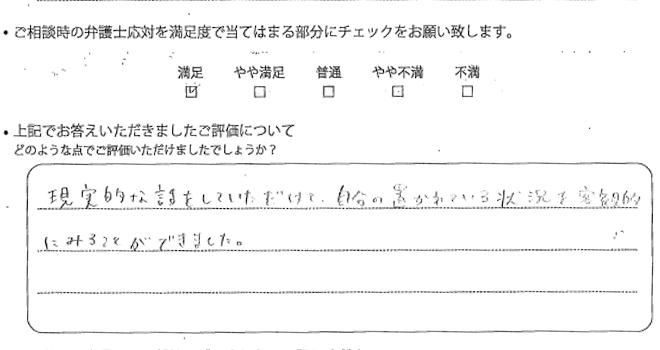 ・ご相談時の弁護士応対を満足度で当てはまる部分にチェックをお願い致します。
満足 やや満足 普通 やや不満 不満
☑ □ □ □ □
・上記でお答えいただきましたご評価について
どのような点でご評価いただけましたでしょうか？
現実的な話をしていただけて、自分の置かれている状況を客観的
にみることができました。